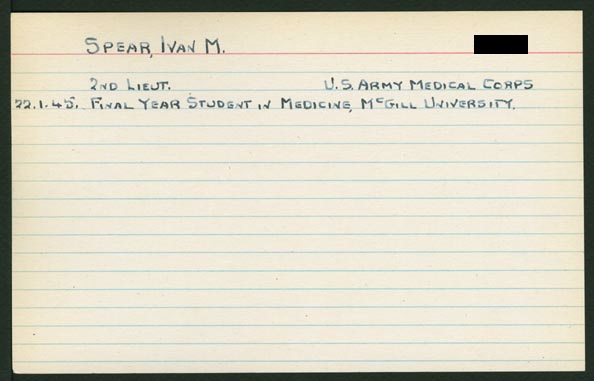 SPEAR, IVAN M.
2ND LIEUT. U.S. ARMY MEDICAL CORPS
22.1.45. FINAL YEAR STUDENT IN MEDICINE, McGILL UNIVERSITY.